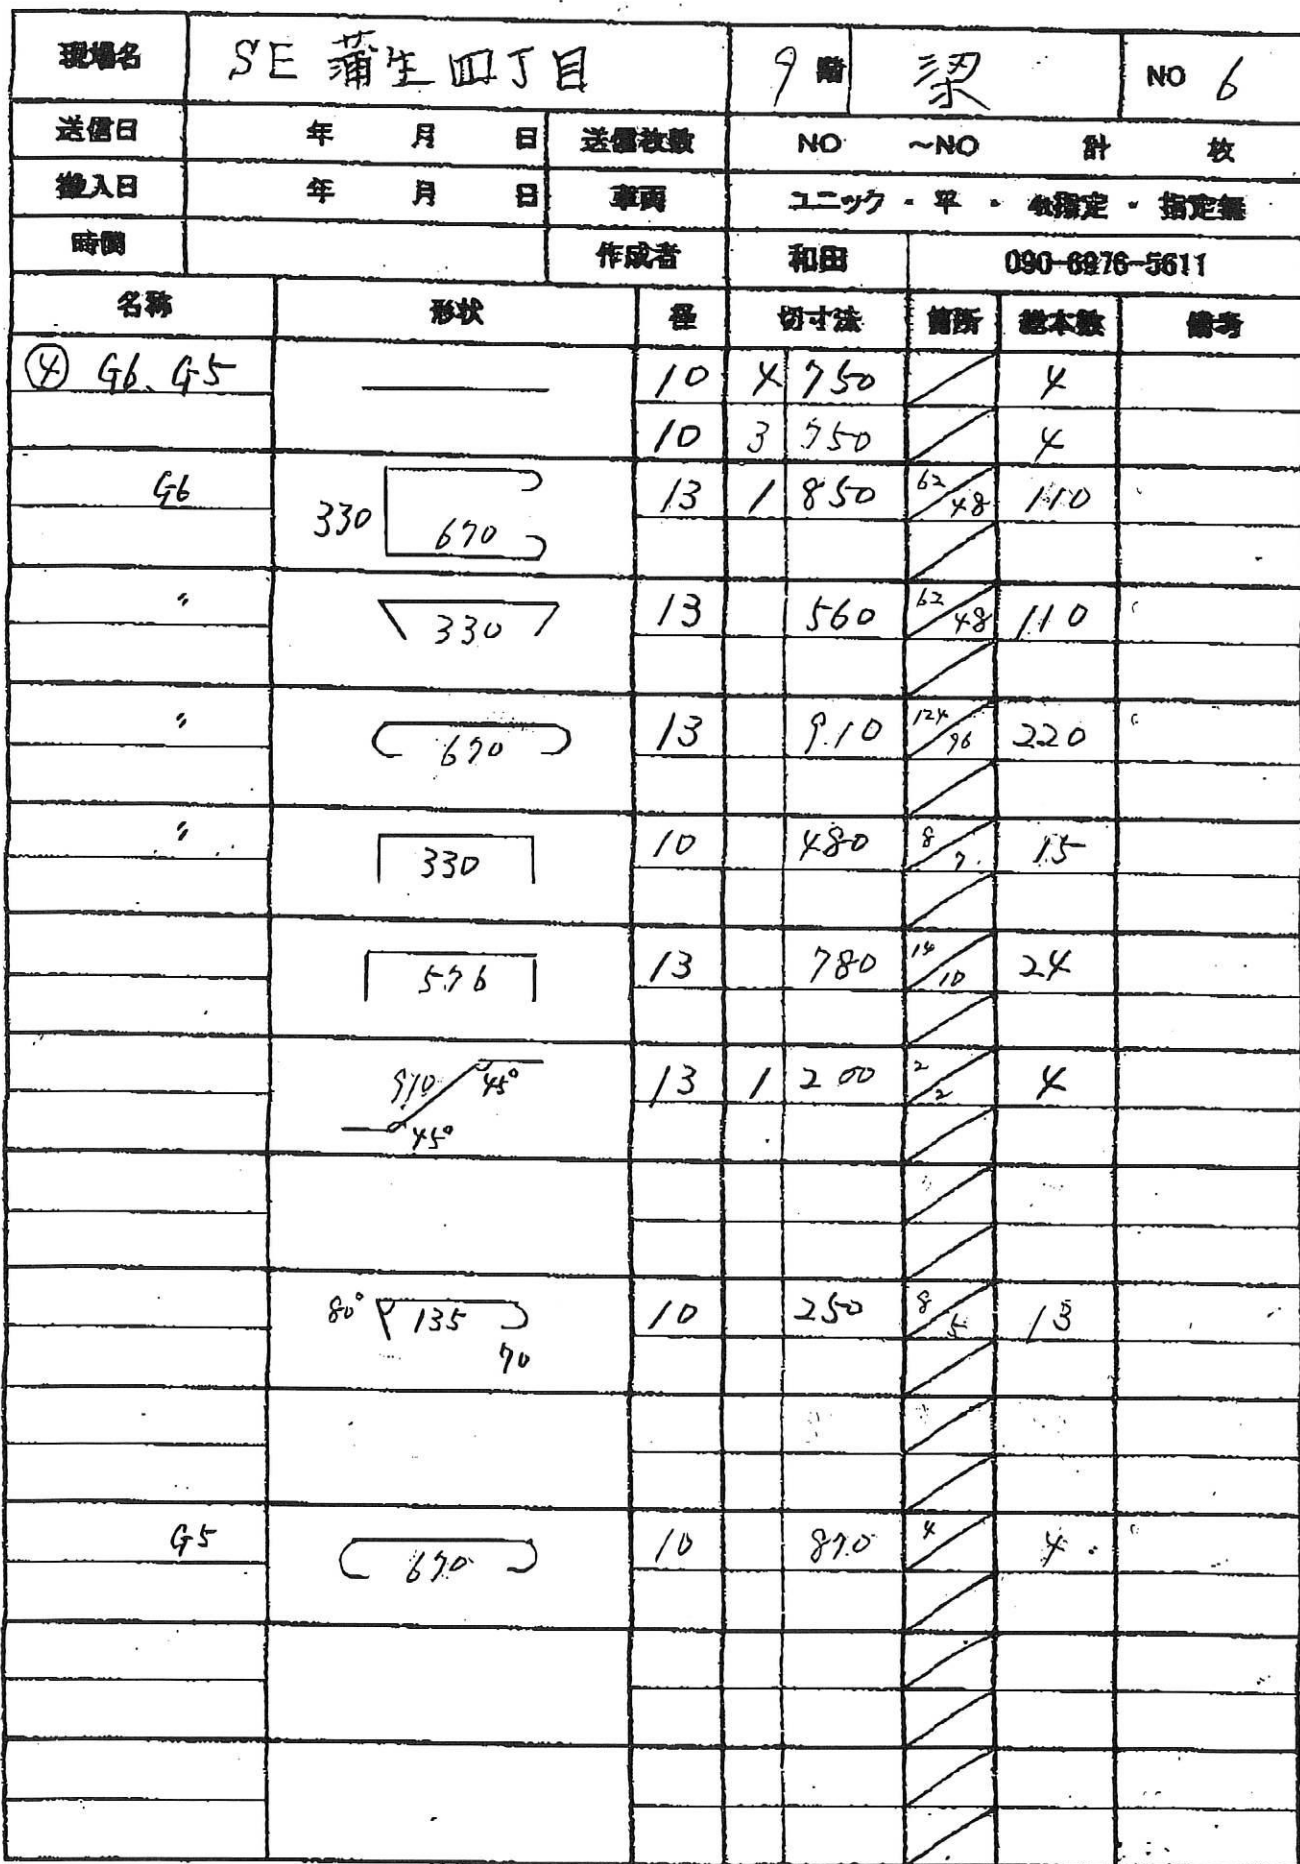 現場名 SE 蒲生四丁目 9 階 梁 NO 6
送信日 年 月 日 送信枚数 NO ~NO 計 枚
搬入日 年 月 日 車両 ユニック・平・4t指定・指定無
時間 作成者 和田 090-6976-5611
名称 形状 径 切寸法 箇所 総本数 備考
④ G6、G5 10 4 750 4
10 3 750 4
G6 330 670 13 1 850 62/48 110
〃 330 13 560 62/48 110
〃 670 13 910 124/96 220
〃 330 10 480 8/7 15
576 13 780 14/10 24
910 45° 45° 13 1 200 2/2 4
80° 135 70 10 250 8/5 13
G5 670 10 870 4 4